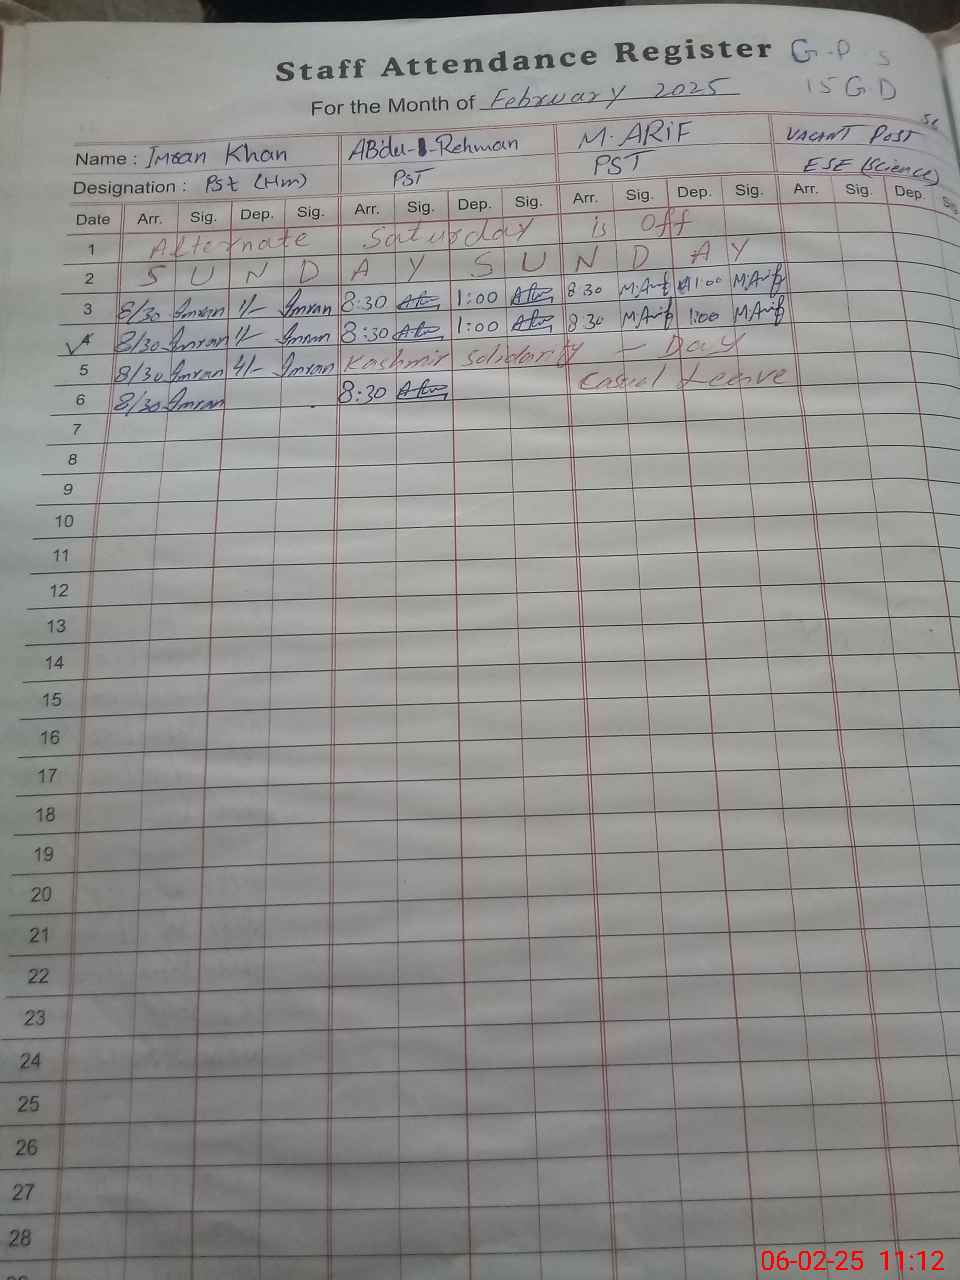 Staff Attendance Register G.P.S
For the Month of February 2025 15 G.D
Name : Imran Khan ABdul-Rehman M. ARiF VACANT POST
Designation : PSt (Hm) PST PST ESE (Science)
Date Arr. Sig. Dep. Sig. Arr. Sig. Dep. Sig. Arr. Sig. Dep. Sig. Arr. Sig. Dep. Sig
1 Alternate Saturday is off
2 S U N D A Y S U N D A Y
3 8/30 Imran 1/- Imran 8:30 1:00 8:30 M.Arif 1:00 M.Arif
4 8/30 Imran 1/- Imran 8:30 1:00 8:30 M.Arif 1:00 M.Arif
5 8/30 Imran 4/- Imran Kashmir Solidarity - Day
6 8/30 Imran 8:30 Casual Leave
7
8
9
10
11
12
13
14
15
16
17
18
19
20
21
22
23
24
25
26
27
28
06-02-25 11:12